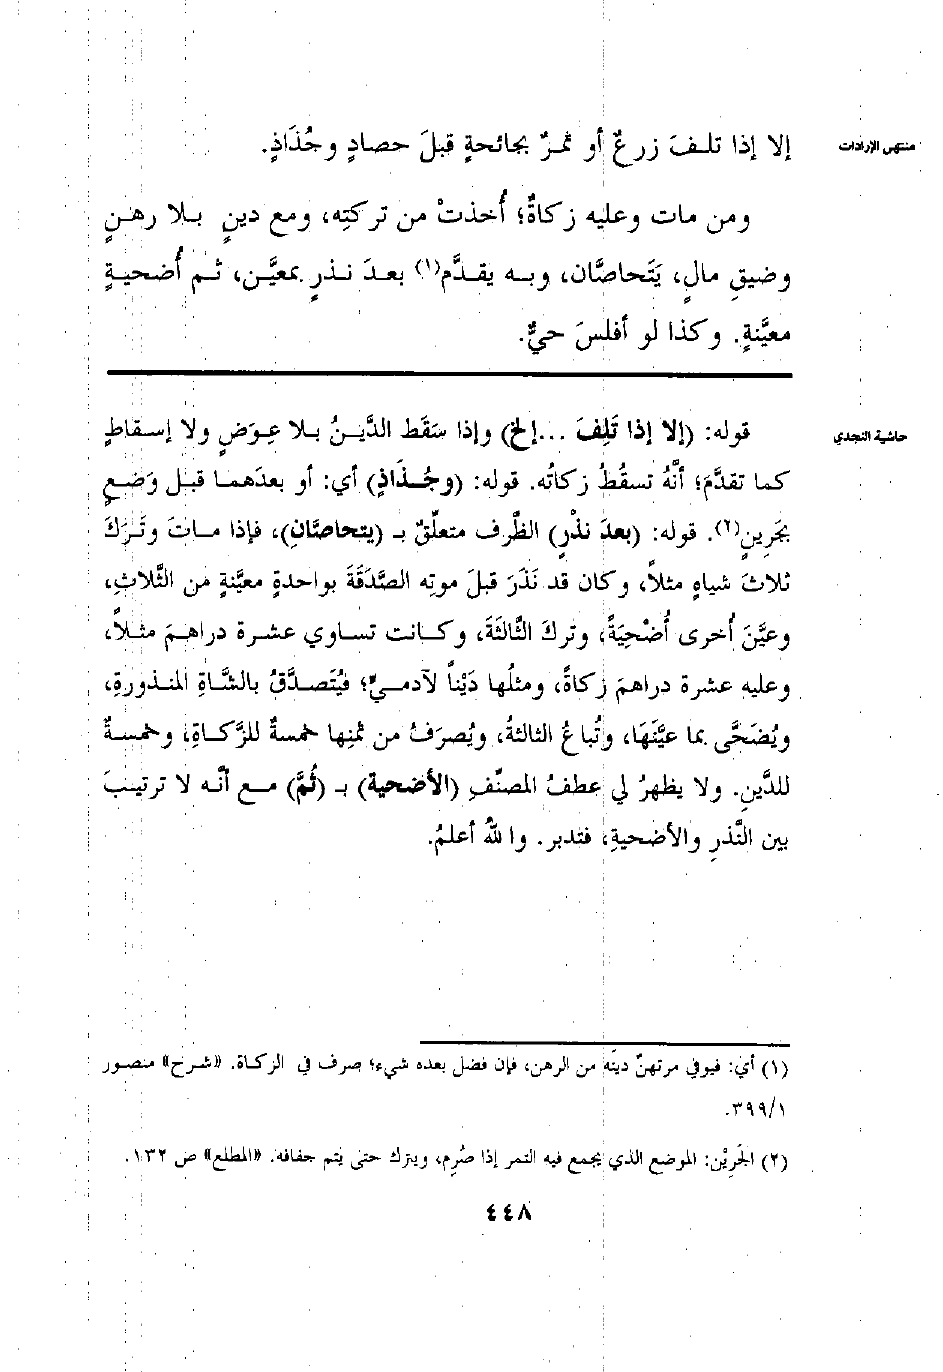 منتهى الإرادات
إلا إذا تلفَ زرعٌ أو ثمرٌ بجائحةٍ قبلَ حصادٍ وجُذَاذٍ.
ومن مات وعليه زكاةٌ؛ أُخذتْ من تركتِه، ومع دينٍ بلا رهنٍ
وضيقِ مالٍ، يَتَحاصَّان، وبه يقدَّم(١) بعدَ نذرٍ بمعيَّن، ثم أُضحيةٍ
معيَّنةٍ. وكذا لو أفلسَ حيٌّ.
حاشية النجدي
قوله: (إلا إذا تَلِفَ ...إلخ) وإذا سَقَط الدَّينُ بلا عِوَضٍ ولا إسقاطٍ
كما تقدَّمَ؛ أنَّهُ تسقُطُ زكاتُه. قوله: (وجُذَاذٍ) أي: أو بعدَهما قبل وَضعٍ
بجَرِينٍ(٢). قوله: (بعدَ نذْرٍ) الظَّرف متعلّقٌ بـ (يتحاصَّان)، فإذا ماتَ وتَرَكَ
ثلاثَ شياهٍ مثلاً، وكان قد نَذَرَ قبلَ موتِه الصَّدَقَةَ بواحدةٍ معيَّنةٍ من الثَّلاثِ،
وعيَّنَ أُخرى أُضْحِيَةً، وتركَ الثَّالثَةَ، وكانت تساوي عشرة دراهمَ مثلاً،
وعليه عشرة دراهمَ زكاةً، ومثلُها دَيْناً لآدميٍّ؛ فيُتَصدَّقُ بالشَّاةِ المنذورةِ،
ويُضَحَّى بما عيَّنَهَا، وتُباعُ الثالثةُ، ويُصرَفُ من ثمنِها خمسةٌ للزَّكاةِ، وخمسةٌ
للدَّينِ. ولا يظهرُ لي عطفُ المصنِّفِ (الأضحية) بـ (ثُمَّ) مع أنَّه لا ترتيبَ
بين النَّذرِ والأضحيةِ، فتدبر. واللهُ أعلمُ.
(١) أي: فيوفى مرتهنٌ دينَه من الرهن، فإن فضل بعده شيء؛ صرف في الزكاة. «شرح» منصور
٣٩٩/١.
(٢) الجَرِيْن: الموضع الذي يجمع فيه التمر إذا صُرِم، ويترك حتى يتم جفافه. «المطلع» ص ١٣٢.
٤٤٨